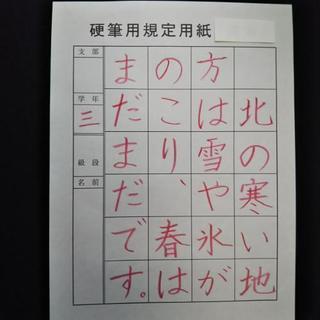 硬筆用規定用紙
北の寒い地
方は雪や氷が
のこり、春は
まだまだです。
支部
学年
三
級段
名前